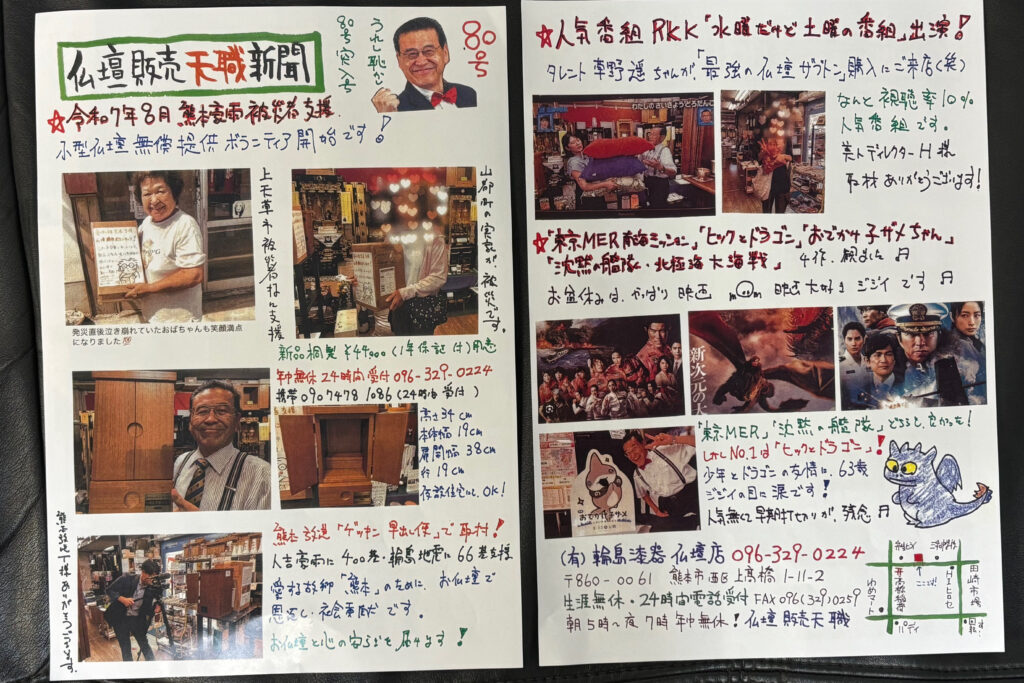 仏壇販売天職新聞
うれし恥かし
80号突入号
80号
☆令和7年8月熊本豪雨被災者支援
小型仏壇無償提供ボランティア開始です!
上天草市被災者様に支援
山都町の実家が、被災です。
発災直後泣き崩れていたおばちゃんも笑顔満点
になりました💯
新品桐製¥44000(1年保証付)用意
年中無休24時間受付096-329-0224
携帯09074781086(24時間受付)
高さ34cm
本体幅19cm
扉開幅38cm
行19cm
仮設住宅にも、OK!
熊本放送「ゲツキン早出し便」で取材!
人吉豪雨に400基・輪島地震に66基支援
愛する故郷「熊本」のために、お仏壇で
恩返し・社会貢献です。
お仏壇と心の安らぎを届けます!
熊本放送T様ありがとうございます。
☆人気番組RKK「水曜だけど土曜の番組」出演!
タレント草野遥ちゃんが、「最強の仏壇ザブトン」購入にご来店(笑)
わたしのさいきょうとろだんこ
なんと視聴率10%
人気番組です。
美人ディレクターH様
取材ありがとうございます!
☆「東京MER南海ミッション」「ヒックとドラゴン」「おでかけ子ザメちゃん」
「沈黙の艦隊・北極海大海戦」4作、観ました
お盆休みは、やっぱり映画 映画大好きジジイです
新次元の大
おでかけ子ザメ
「東京MER」「沈黙の艦隊」どちらも良かった!
しかしNo.1は「ヒックとドラゴン」!
少年とドラゴンの友情に、63歳
ジジイの目に涙です!
人気無くて早期打ち切りが、残念
(有)輪島漆器仏壇店096-329-0224
〒860-0061 熊本市西区上高橋1-11-2
生涯無休・24時間電話受付FAX096(329)0259
朝5時〜夜7時年中無休!仏壇販売天職
ここだよ!
高橋稲荷
田崎市場
ヒロセ
わめマート